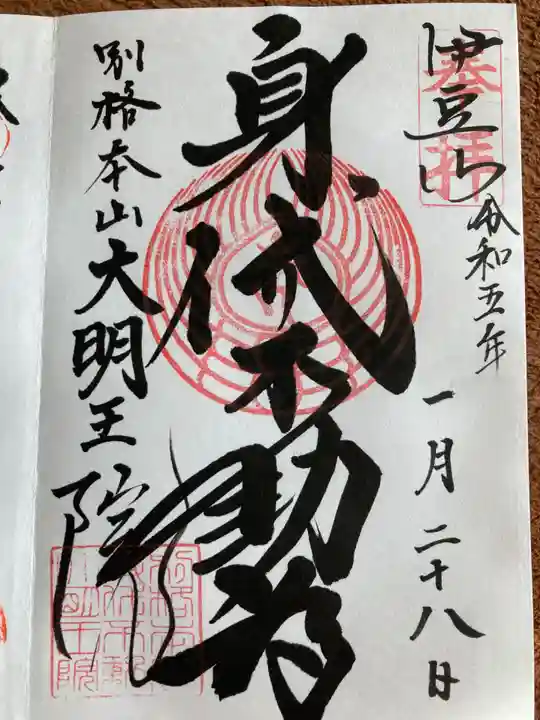 奉拝
伊豆山 令和五年
一月二十八日
身代不動尊
別格本山大明王院